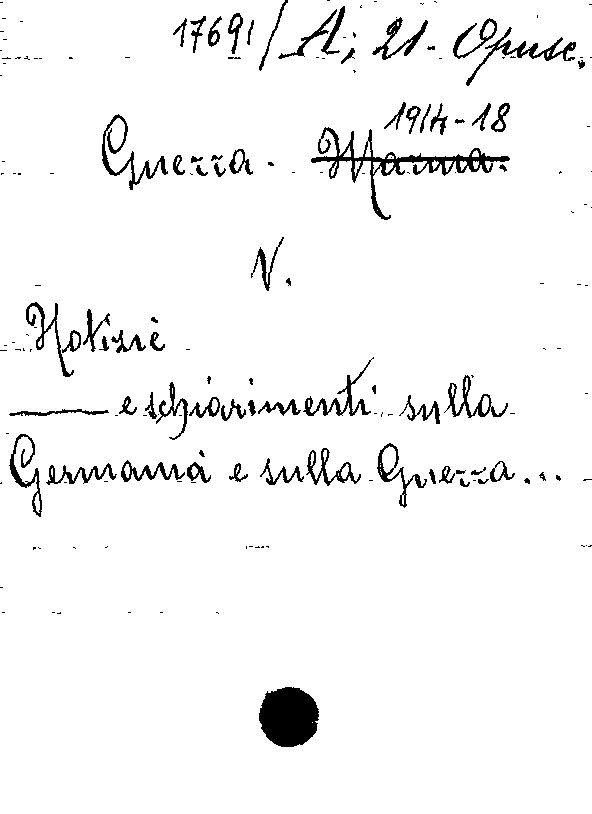 17691/A; 21. Opusc.
1914-18
Guerra.
V.
Notizie
——— e schiarimenti sulla
Germania e sulla Guerra...